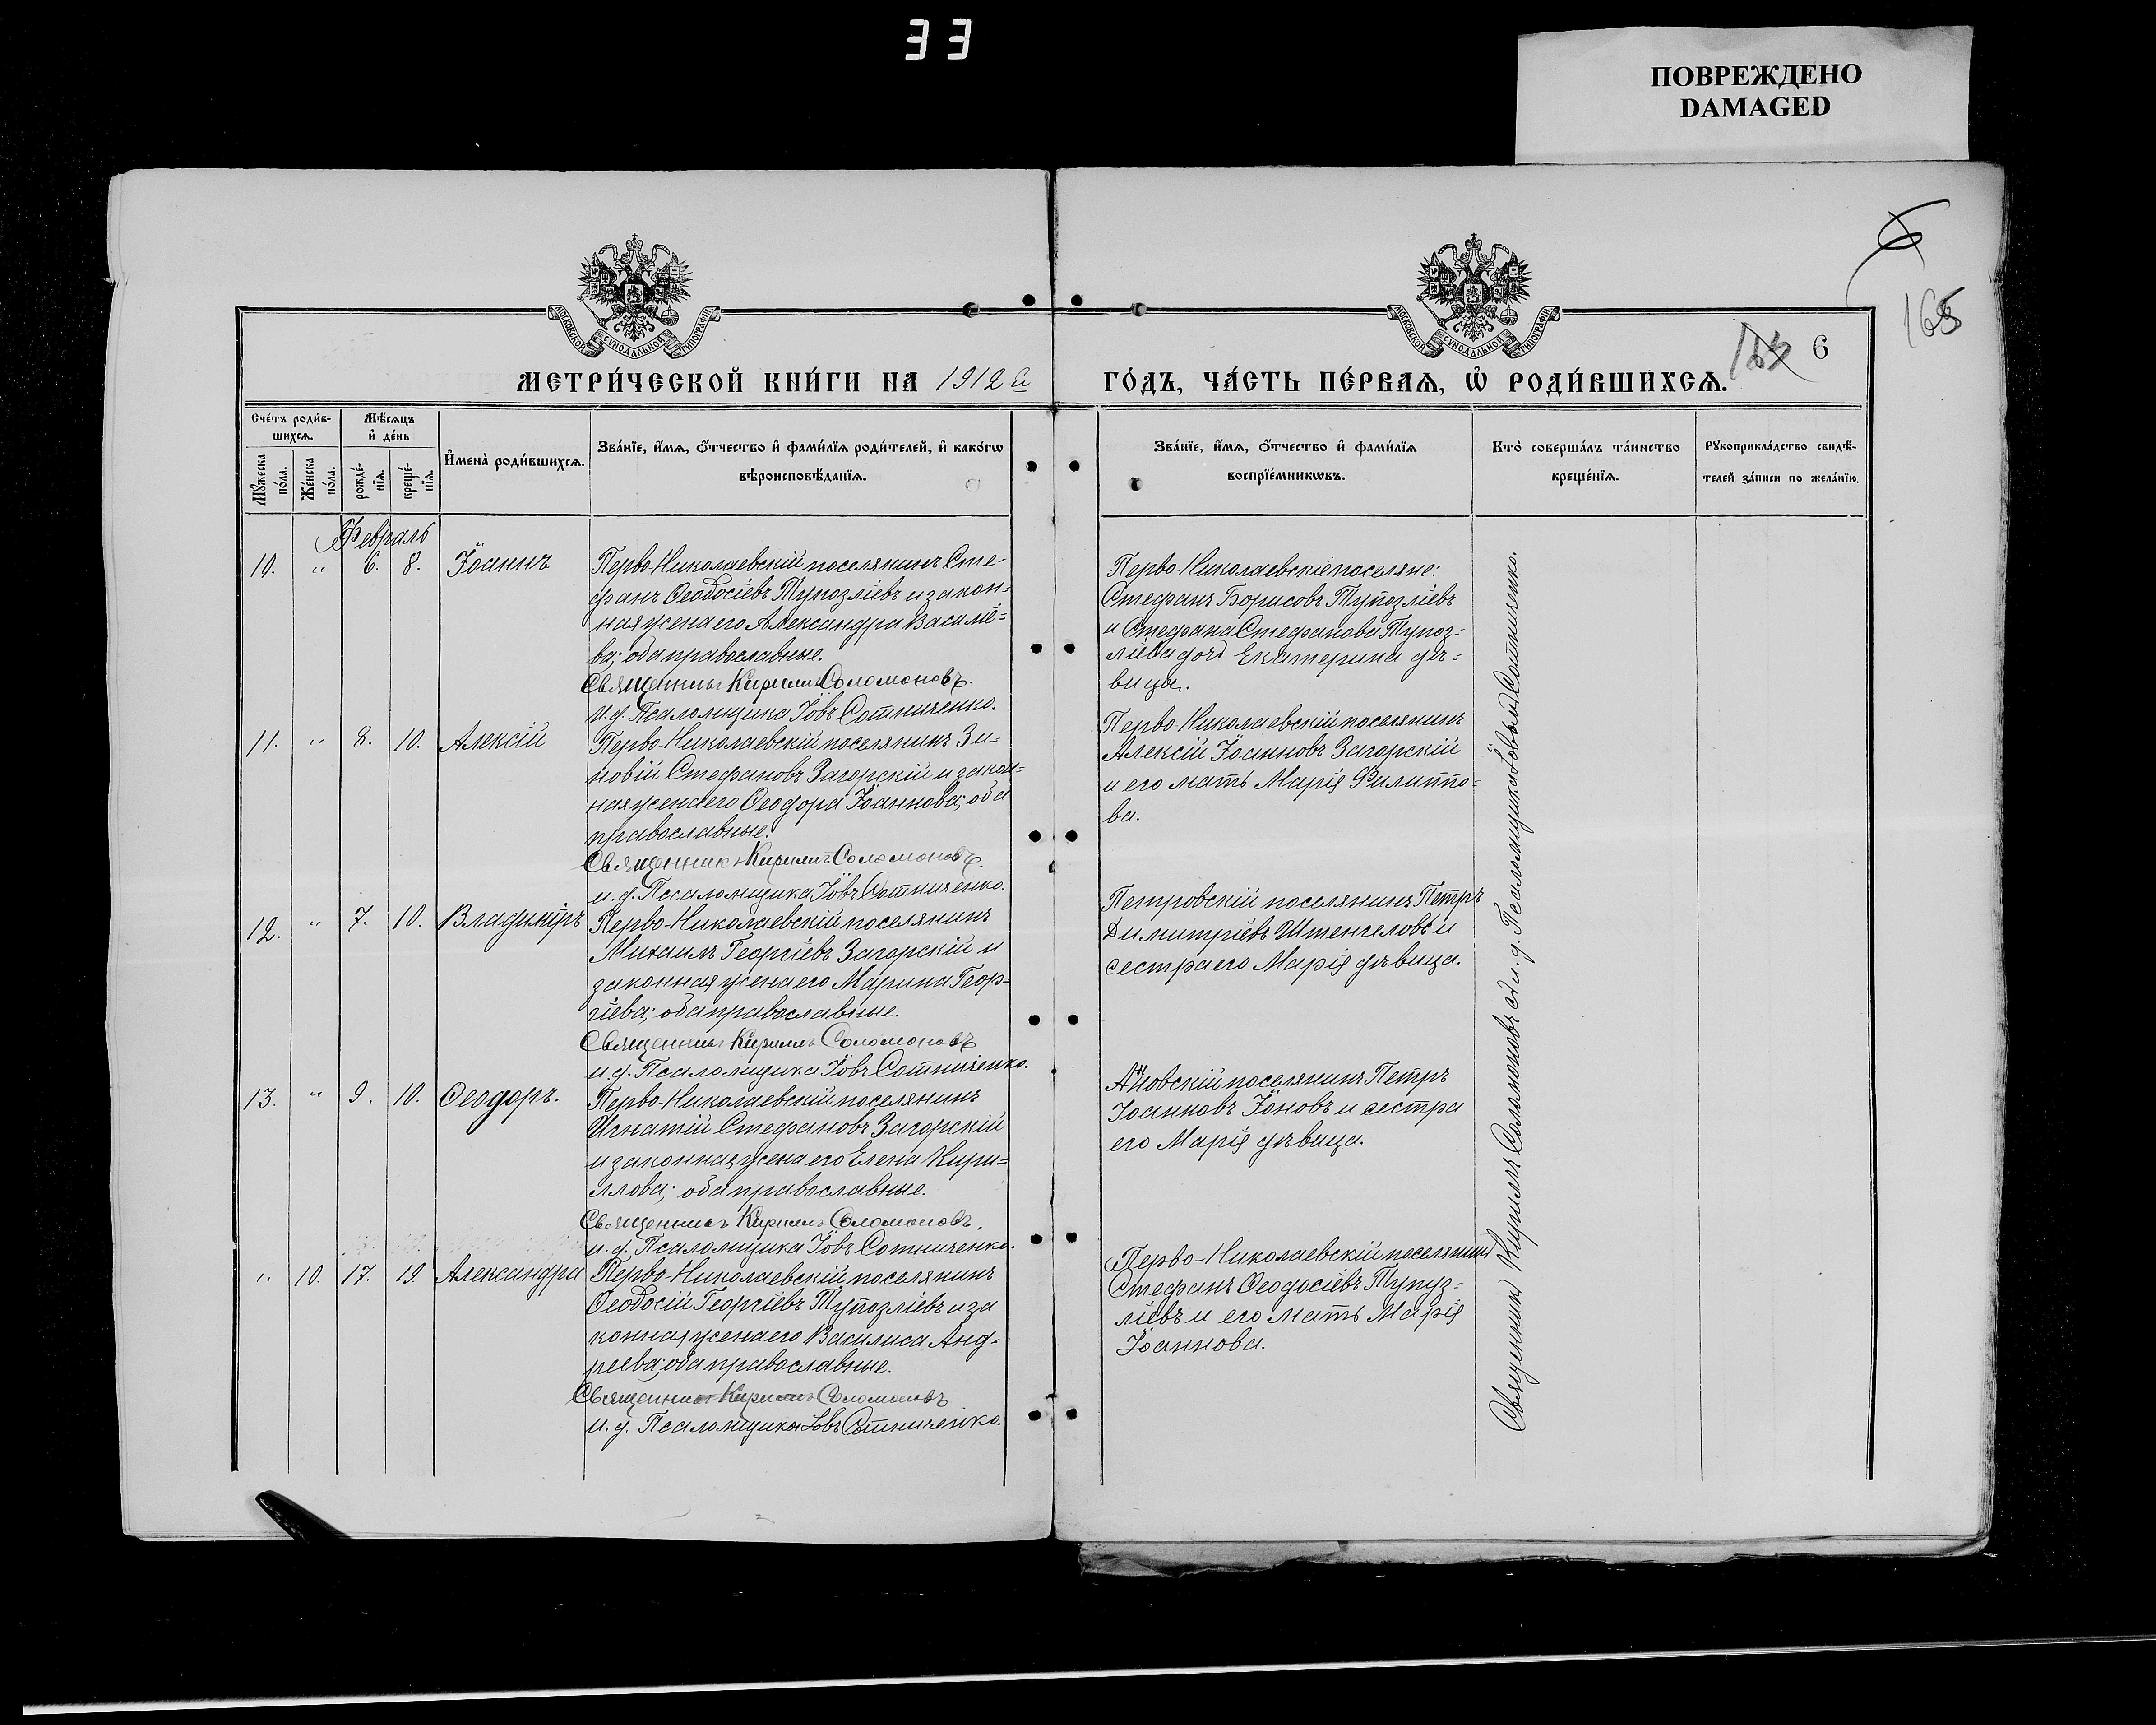 33
ПОВРЕЖДЕНО
DAMAGED
6
165
6
МОСКОВСКОЙ СѴНОДАЛЬНОЙ ТИПОГРАФІИ
МОСКОВСКОЙ СѴНОДАЛЬНОЙ ТИПОГРАФІИ
МЕТРИ́ЧЕСКОЙ КНИ́ГИ НА 1912 й
ГО́ДЪ, ЧА́СТЬ ПЕ́РВАѦ, Ѡ҆ РОДИ́ВШИХСѦ.
Сче́тъ роди́в-
шихсѧ.
Мѣ́сѧцъ
и҆ де́нь
Мꙋ́жеска по́ла.
Же́нска по́ла.
рожде́-нїѧ.
креще́-нїѧ.
И҆мена̀ роди́вшихсѧ.
Зва́нїе, и҆́мѧ, ѻ҆́тчество и҆ фами́лїѧ роди́телей, и҆ како́гѡ
вѣроисповѣ́данїѧ.
Зва́нїе, и҆́мѧ, ѻ҆́тчество и҆ фами́лїѧ
воспрїе́мникѡвъ.
Кто̀ соверша́лъ та́инство
креще́нїѧ.
Рꙋкоприкла́дство свидѣ́-
телей за́писи по жела́нїю.
Февраль
10. " 6. 8. Іоаннъ
Перво-Николаевскій поселянинъ Сте-
фанъ Ѳеодосіевъ Тупозліевъ и закон-
ная жена его Александра Василіе-
ва; оба православные.
Священникъ Кириллъ Соломоновъ.
И. д. Псаломщика Іовъ Сотниченко.
Перво-Николаевскіе поселяне:
Стефанъ Борисовъ Тупозліевъ
и Стефана Стефанова Тупоз-
ліева дочь Екатерина дѣ-
вица.
11. " 8. 10. Алексій
Перво-Николаевскій поселянинъ Зи-
новій Стефановъ Загорскій и закон-
ная жена его Ѳеодора Іоаннова; оба
православные.
Священникъ Кириллъ Соломоновъ.
и. д. Псаломщика Іовъ Сотниченко.
Перво-Николаевскій поселянинъ
Алексій Іоанновъ Загорскій
и его мать Марія Филиппо-
ва.
12. " 7. 10. Владиміръ
Перво-Николаевскій поселянинъ
Михаилъ Георгіевъ Загорскій и
законная жена его Марина Геор-
гіева; оба православные.
Священникъ Кириллъ Соломоновъ
и. д. Псаломщика Іовъ Сотниченко.
Петровскій поселянинъ Петръ
Димитріевъ Штенгеловъ и
сестра его Марія дѣвица.
13. " 9. 10. Ѳеодоръ.
Перво-Николаевскій поселянинъ
Игнатій Стефановъ Загорскій
и законная жена его Елена Кири-
ллова; оба православные.
Священникъ Кириллъ Соломоновъ.
и. д. Псаломщика Іовъ Сотниченко.
Анновскій поселянинъ Петръ
Іоанновъ Іоновъ и сестра
его Марія дѣвица.
" 10. 17. 19. Александра
Перво-Николаевскій поселянинъ
Ѳеодосій Георгіевъ Тупозліевъ и за
конная жена его Василиса Анд-
реева; оба православные.
Священникъ Кириллъ Соломоновъ
И. д. Псаломщика Іовъ Сотниченко.
Перво-Николаевскій поселянинъ
Стефанъ Ѳеодосіевъ Тупуз-
ліевъ и его мать Марія
Іоаннова.
Священникъ Кириллъ Соломоновъ съ и. д. Псаломщика Іовомъ Сотниченко.